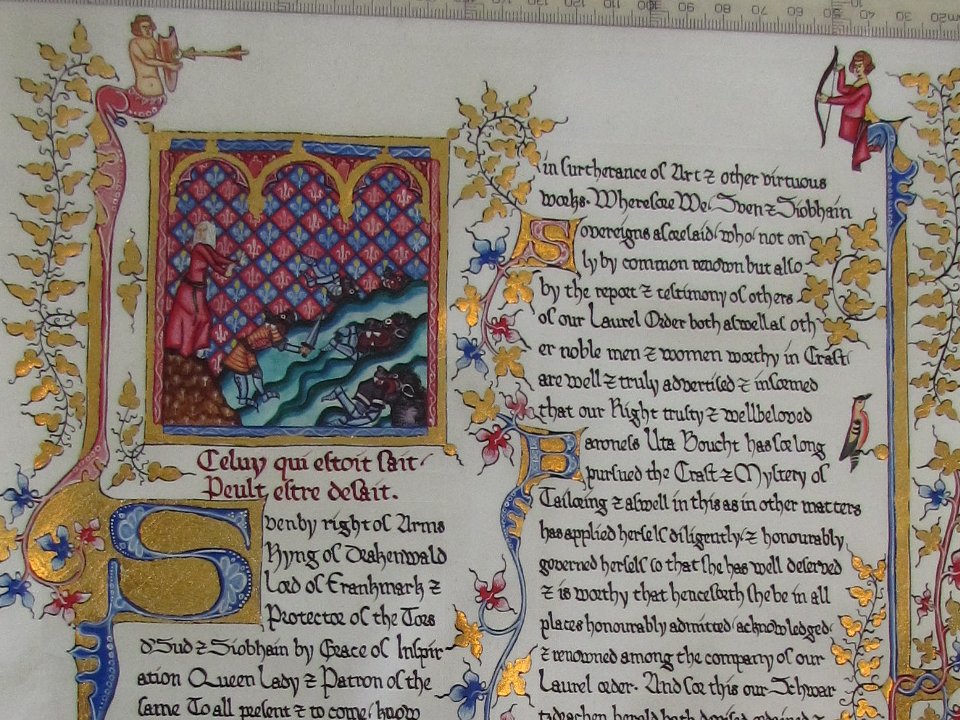 130 120 110 100 90 80 70 60 50 40 30 20
Celuy qui estoit fait·
Peult estre defait.
Sven by right of Arms
Kyng of Drakenwald
Lord of Frankmark ⁊
Protector of the Toes
d'Sud ⁊ Siobhain by Grace of Inspir-
ation Queen Lady ⁊ Patron of the
same To all present ⁊ to come/ know
in furtherance of Art ⁊ other virtuous
works. Wherefore We/ Sven ⁊ Siobhain
Sovereigns aforesaid/ who/ not on
ly by common renown but also
by the report ⁊ testimony of others
of our Laurel Order both aswell as oth
er noble men ⁊ women worthy in Craft/
are well ⁊ truly advertised ⁊ informed
that our Right trusty ⁊ wellbeloved
Baroness Uta Boucht has for long
pursued the Craft ⁊ Mystery of
Tailoring ⁊ aswell in this as in other matters
has applied herself diligently/ ⁊ honourably
governed herself so that she has well deserved
⁊ is worthy that henceforth she be in all
places honourably admitted/ acknowledged/
⁊ renowned among the company of our
Laurel order. And for this our Schwar
tzdrachen herald hath devised ordained ⁊